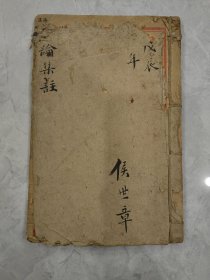 戊辰
年
論集註
侯世章